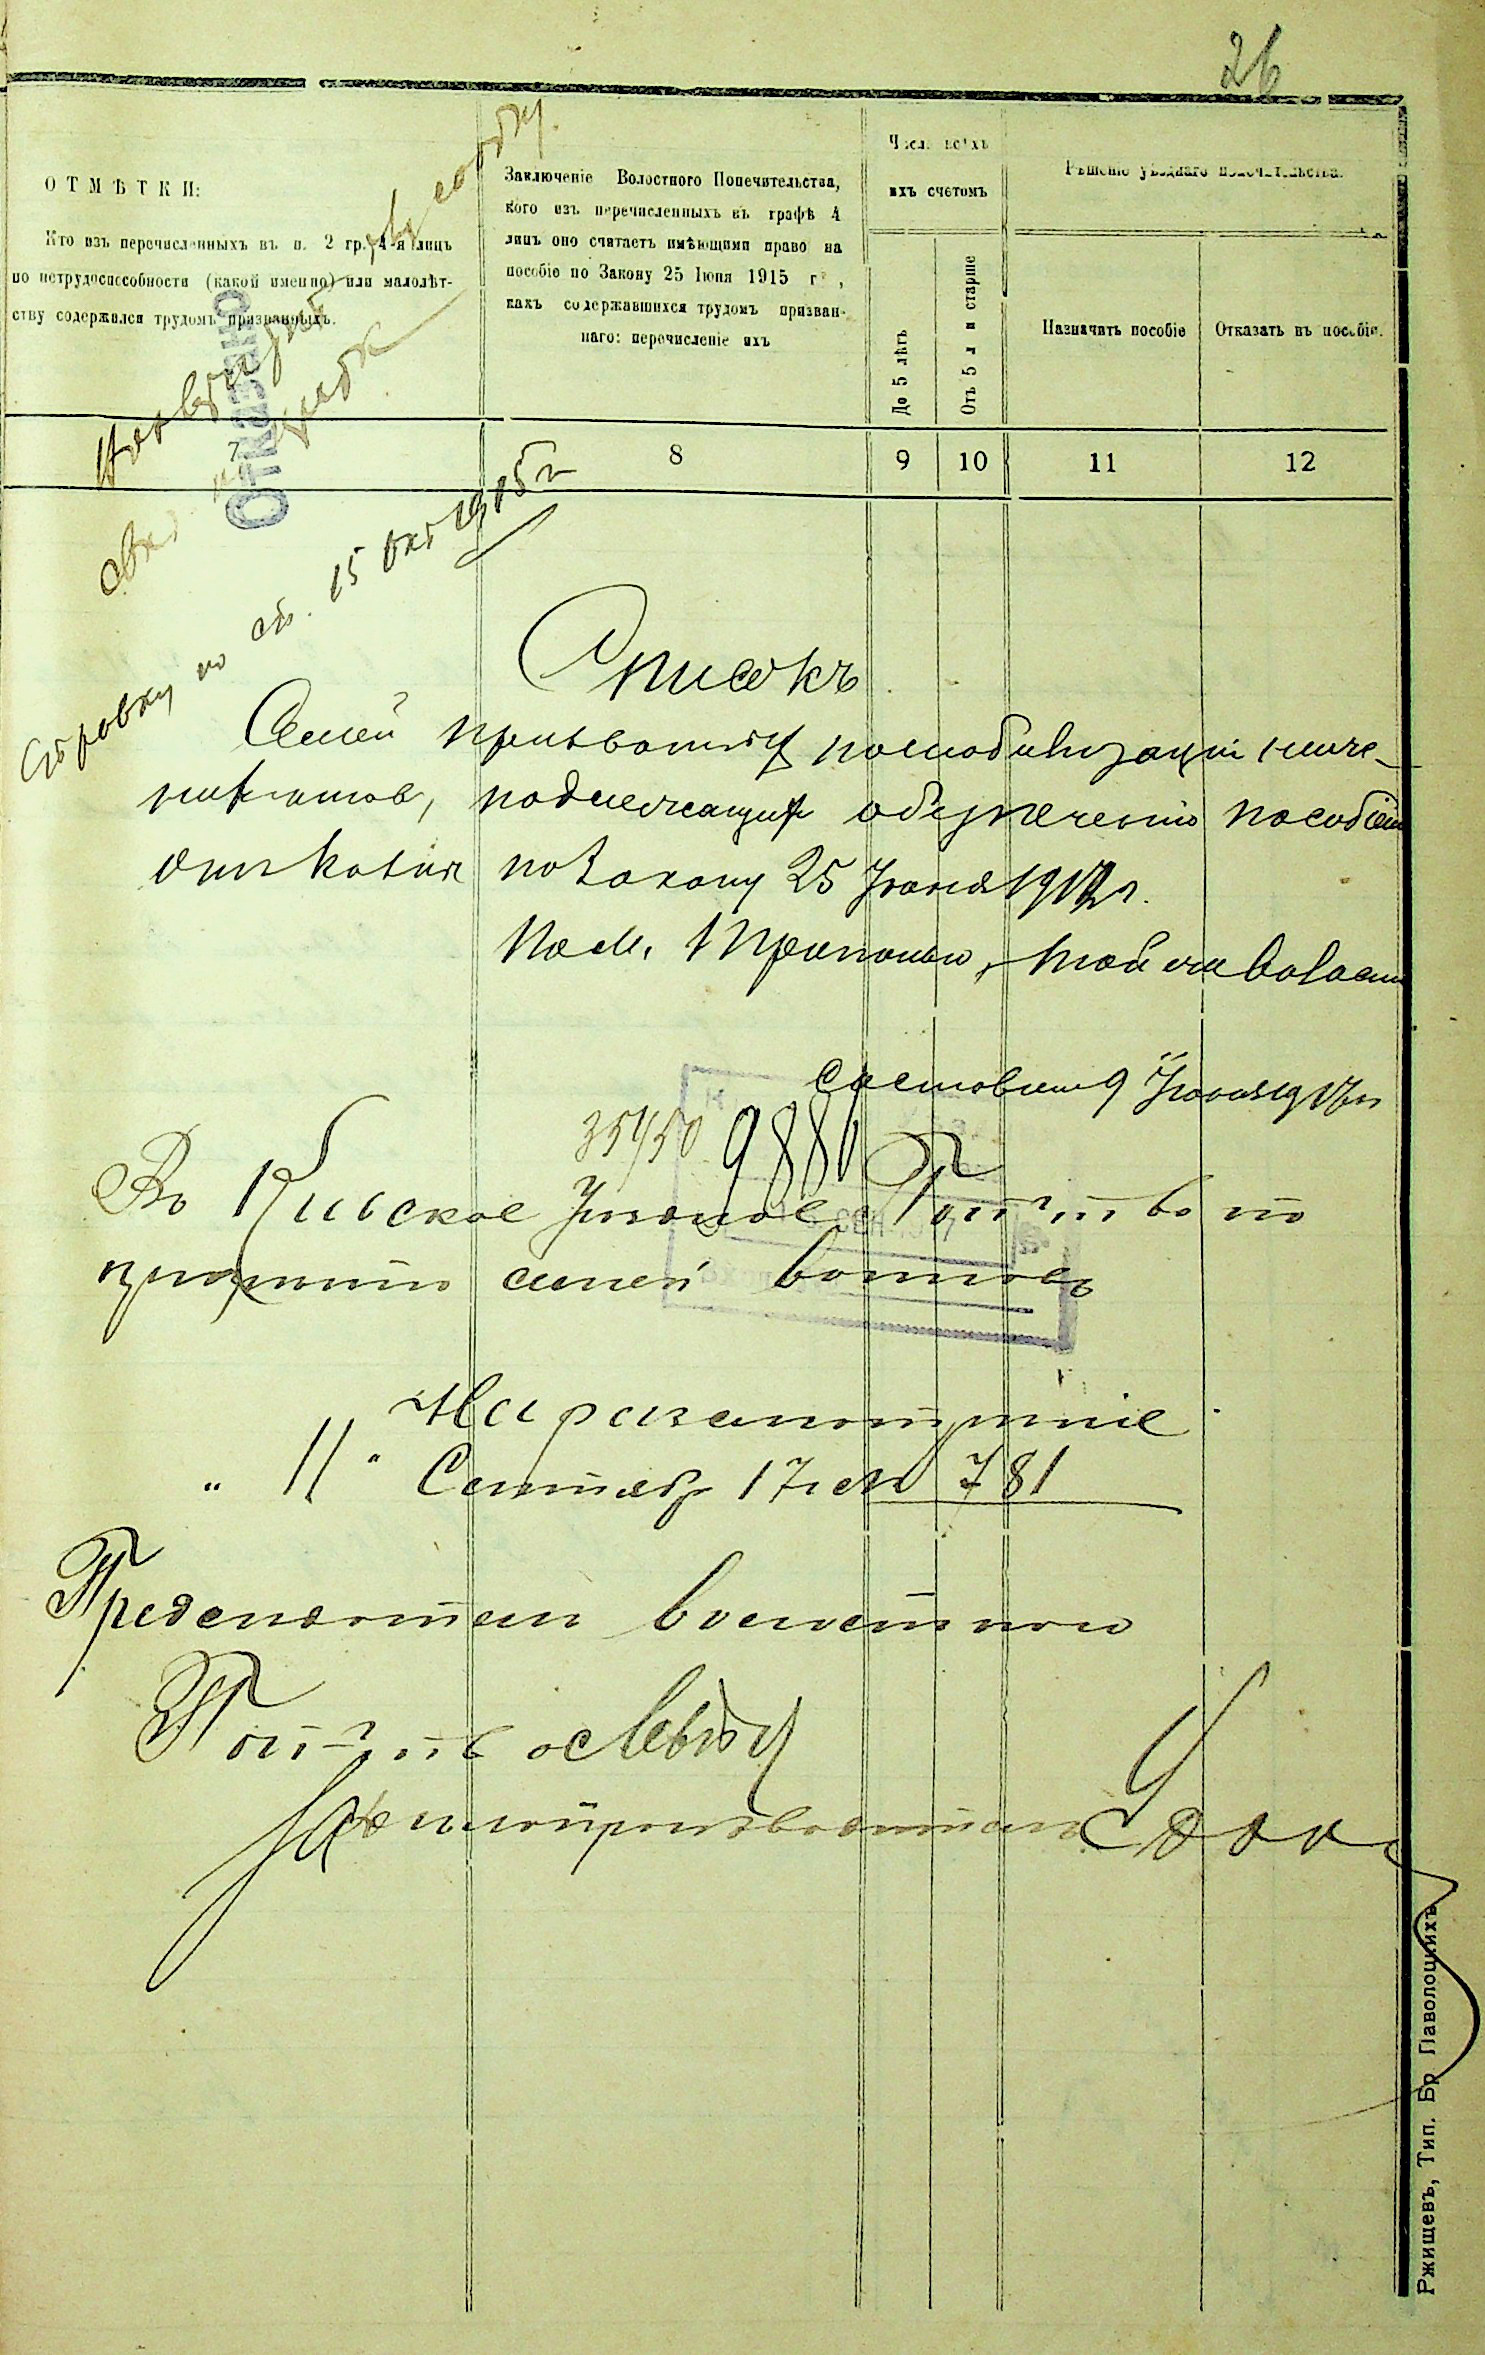 26
ОТМѢТКИ:
Кто изъ перечисленныхъ въ п. 2 гр. 4-я лицъ
по нетрудоспособности (какой именно) или малолѣт-
ству содержался трудомъ призванныхъ.
Заключеніе Волостного Попечительства,
кого изъ перечисленныхъ въ графѣ 4
лицъ оно считаетъ имѣющими право на
пособіе по Закону 25 Іюня 1915 г.,
какъ содержавшихся трудомъ призван-
наго: перечисленіе ихъ
Числ. всѣхъ
ихъ счетомъ
До 5 лѣтъ
Отъ 5 л и старше
Рѣшеніе уѣзднаго попечительства.
Назначить пособіе
Отказать въ пособіи.
7 8 9 10 11 12
Отказано
Справку по ст. 15 Окт 1915 г
Списокъ
Семей призванных по мобилизаціи нижн-
подлежащих обезпеченію пособіем
по Закону 25 Іюня 1912 г.
По м. Триполью, той же волости
Составлен 9 Іюня 1917 г
35450 9886
Въ Кіевское Уѣздное Поп-тво по
призрѣнію семей воинов
На распоряженіе
" 11 " Сентябр 17 г № 781
Предсѣдатель Волостного
Поп-тва
Дѣлопроизводитель
Ржищевъ, Тип. Бр Паволоцкихъ